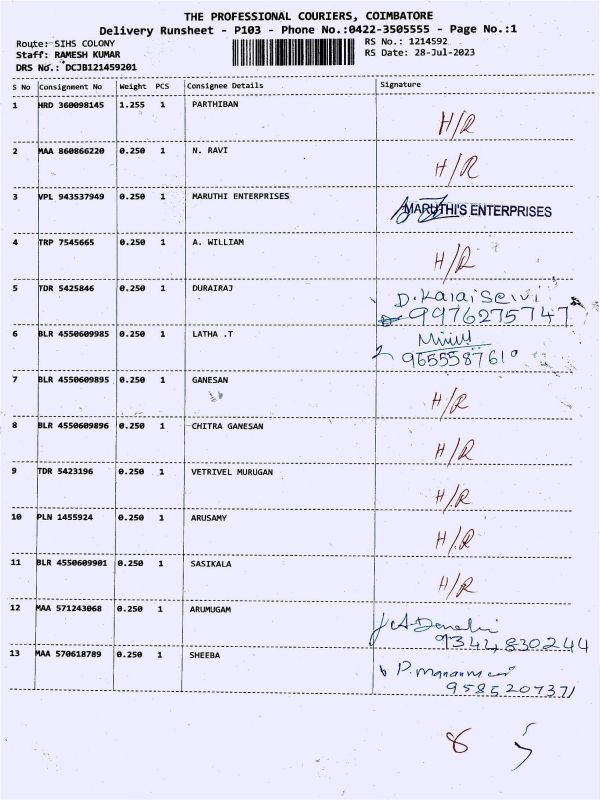 THE PROFESSIONAL COURIERS, COIMBATORE
Delivery Runsheet - P103 - Phone No.:0422-3505555 - Page No.:1
Route: SIHS COLONY
RS No.: 1214592
Staff: RAMESH KUMAR
RS Date: 28-Jul-2023
DRS No.: DCJB121459201
S No Consignment No Weight PCS Consignee Details Signature
1 HRD 360098145 1.255 1 PARTHIBAN
H/R
2 MAA 860866220 0.250 1 N. RAVI
H/R
3 VPL 943537949 0.250 1 MARUTHI ENTERPRISES
MARUTHI'S ENTERPRISES
4 TRP 7545665 0.250 1 A. WILLIAM
H/R
5 TDR 5425846 0.250 1 DURAIRAJ
D.Kalai Selvi
9976275747
6 BLR 4550609985 0.250 1 LATHA .T
9655587610
7 BLR 4550609895 0.250 1 GANESAN
H/R
8 BLR 4550609896 0.250 1 CHITRA GANESAN
H/R
9 TDR 5423196 0.250 1 VETRIVEL MURUGAN
H/R
10 PLN 1455924 0.250 1 ARUSAMY
H/R
11 BLR 4550609901 0.250 1 SASIKALA
H/R
12 MAA 571243068 0.250 1 ARUMUGAM
9344830244
13 MAA 570618789 0.250 1 SHEEBA
9585207371
8 5